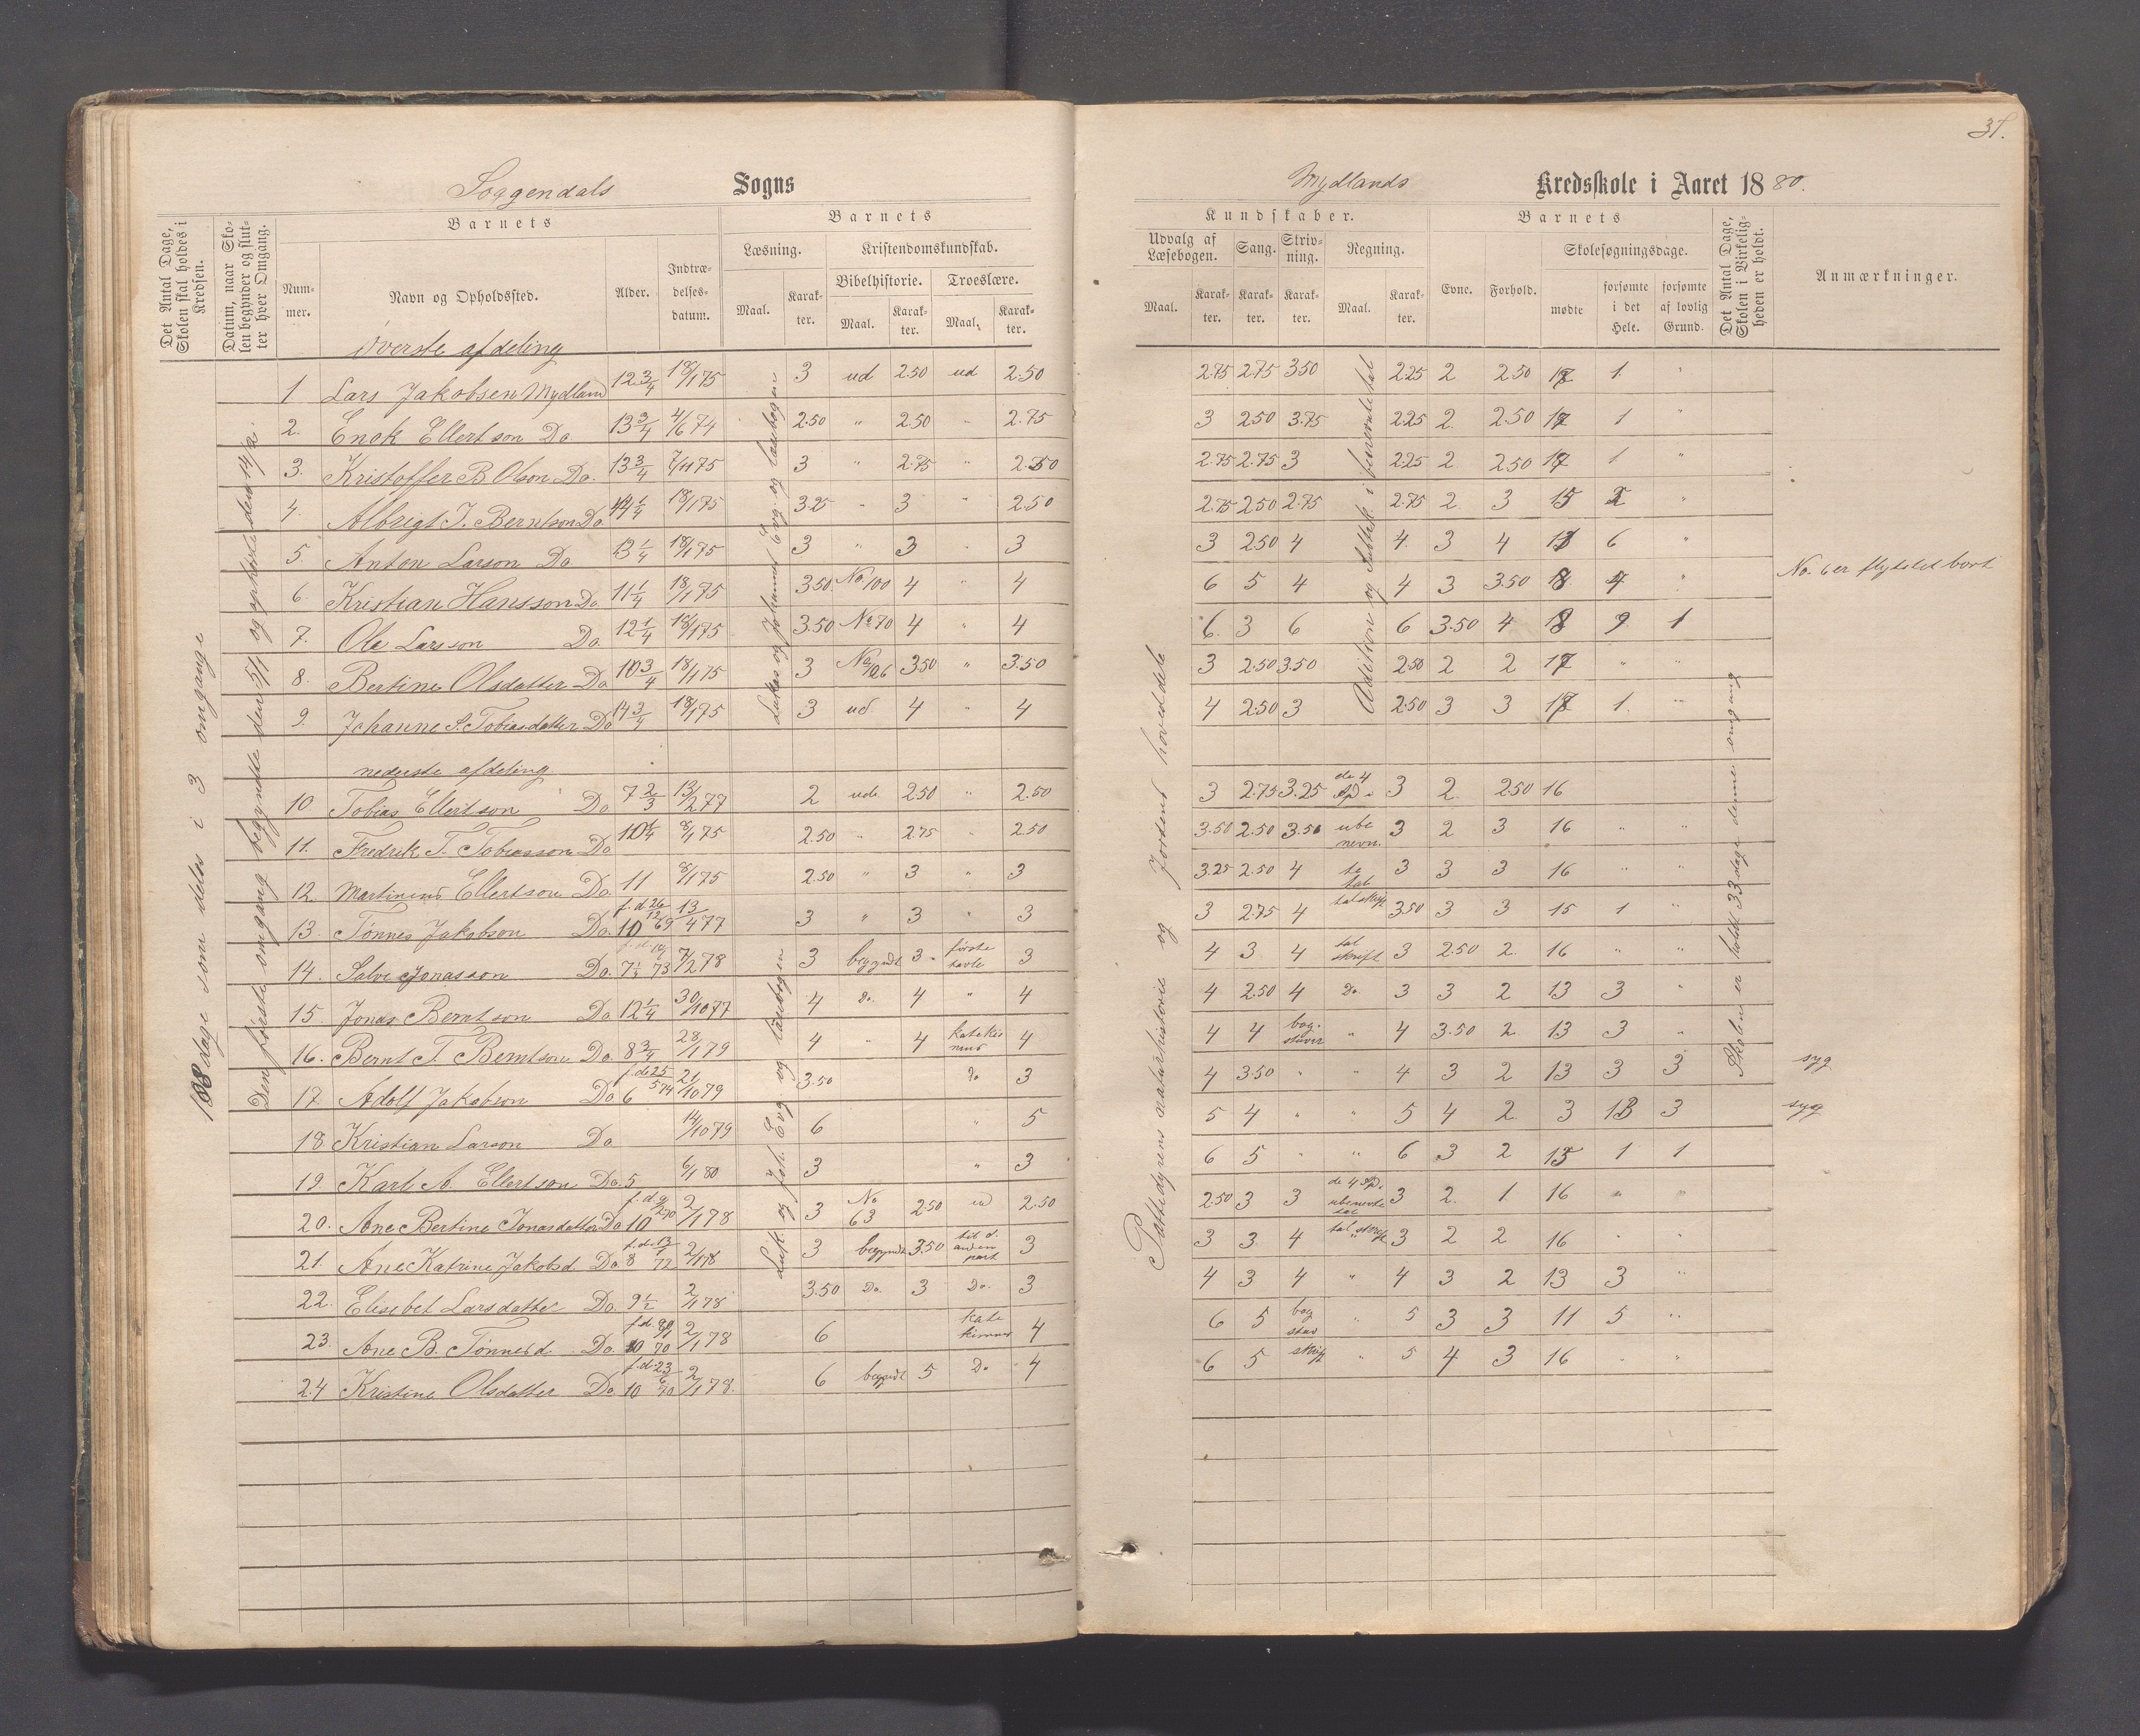 31.
Soggendals Sogns
Mydlands Kredsskole i Aaret 1880.
Det Antal Dage, Skolen skal holdes i Kredsen.
Datum, naar Skolen begynder og slutter hver Omgang.
Barnets
Barnets
Nummer.
Navn og Opholdssted.
Alder.
Indtrædelsesdatum.
Læsning.
Kristendomskundskab.
Bibelhistorie.
Troeslære.
Maal.
Karakter.
Maal.
Karakter.
Maal.
Karakter.
Kundskaber.
Barnets
Udvalg af Læsebogen.
Sang.
Skrivning.
Regning.
Evne.
Forhold.
Skolesøgningsdage.
Maal.
Karakter.
Karakter.
Karakter.
Maal.
Karakter.
mødte
forsømte i det Hele.
forsømte af lovlig Grund.
Det Antal Dage, Skolen i Virkeligheden er holdt.
Anmærkninger.
dage som deles i 3 omgange
Den første omgang begyndte den 5/1 og ophørte den 14/2.
Lukas og Johannes Evg. og læsebogen
Luk. og Joh. Evg. og læsebogen
Pattedyrens naturhistorie og Jordens hoveddele
Adition og Subtrak. i benevnte tal
Skolen er holdt 33 dage denne omgang
øverste afdeling
1 Lars Jakobsen Mydland 12 3/4 18/1 75 3 ud 2.50 ud 2.50 2.75 2.75 3.50 2.25 2 2.50 17 1. "
2. Enok Ellertson Do 13 3/4 4/6 74 2.50 " 2.50 " 2.75 3 2.50 3.75 2.25 2. 2.50 17 1 "
3. Kristoffer B. Olson Do. 13 3/4 7/11 75 3 " 2.75 " 2.50 2.75 2.75 3 2.25 2 2.50 17 1 "
4. Albrigt T. Berntson Do 14 1/4 18/1 75 3.25 " 3 " 2.50 2.75 2.50 2.75 2.75 2 3 15 "
5. Anton Larson Do 13 1/4 18/1 75 3 " 3 " 3 3 2.50 4 4. 3 4 6 "
6. Kristian Hansson Do. 11 1/4 18/1 75 3.50 No 100 4 " 4 6 5 4 4 3 3.50 "
No. 6 er flyttet bort
7. Ole Larsson Do. 12 1/4 18/1 75 3.50 No 70 4 " 4 6. 3 6 6 3.50 4 9 1
8. Bertine Olsdatter Do 10 3/4 18/1 75 3 3.50 " 3.50 3 2.50 3.50 2.50 2 2 17 " "
9. Johanne S. Tobiasdatter Do 14 3/4 18/1 75 3 ud 4 " 4 4 2.50 3 2.50 3 3 17 1. "
nederste afdeling
10 Tobias Ellertson Do 7 2/3 13/2 77 2 ude 2.50 " 2.50 3 2.75 3.25 de 4 Sp. 3 2. 2.50 16
11. Fredrik T. Tobiasson Do 10 1/4 8/1 75 2.50 " 2.75 " 2.50 3.50 2.50 3.50 ube nevn. 3 2 3 16 " "
12. Martinius Ellertson Do. 11 8/1 75 2.50 " 3 " 3 3.25 2.50 4 te tal 3 3 3 16 " "
13. Tønnes Jakobson Do. 10 f. d. 26/12 69 13/4 77 3 " 3 " 3 3 2.75 4 talskrift 3.50 3 3 15 1 "
14. Salve Jonasson Do. 7 1/2 73 7/2 78 3 begyndt 3. første tavle 3 4 3 4 tal skrift 3 2.50 2. 16 " "
15. Jonas Berntson Do 12 1/4 30/10 77 4 Do. 4 " 4 4 2.50 4 Do. 3 3 2 13 3 "
16. Bernt T. Berntson Do. 8 3/4 28/1 79 4 " 4 katekis mus 4 4 4 bogstaver " 4 3.50 2. 13 3 "
17. Adolf Jakobson Do 6 f. d. 25/5 74 21/10 79 3.50 Do 3 4 3.50 " " 4 3 2 13 3 3 syg
18. Kristian Larson Do 14/10 79 6 " 5 5 4 " " 5 4 2. 3 13 3 syg
19. Karl A. Ellertson Do. 5 6/1 80 3 " 3 6 5 " " 6 3 2 15 1 1
20. Ane Bertine Jonasdatter Do 10 f. d. 9/2 70 2/1 78 3 No 63 2.50 ud 2.50 2.50 3 3 de 4 Sp. ubenevnte tal 3 2. 1. 16 " "
21. Ane Katrine Jakobsd. Do 8 f. d. 13/1 72 2/1 78 3 begyndt 3.50 til d. anden part 3 3 3. 4 tal skrift 3 2 2 16 " "
22. Elisebet Larsdatter Do. 9 1/2 2/1 78 3.50 Do. 3 Do. 3 4 3 4 " 4 3 2 13 3 "
23. Ane B. Tønnesd. Do. 10 70 2/1 78 6 kate kismus 4 6 5 bog stav " 5 3 3 11 5 "
24 Kristine Olsdatter Do 10 f. d. 23/6 70 2/1 78. 6 begyndt 5 Do 4 6 5 skrift " 5 4 3 16 " "